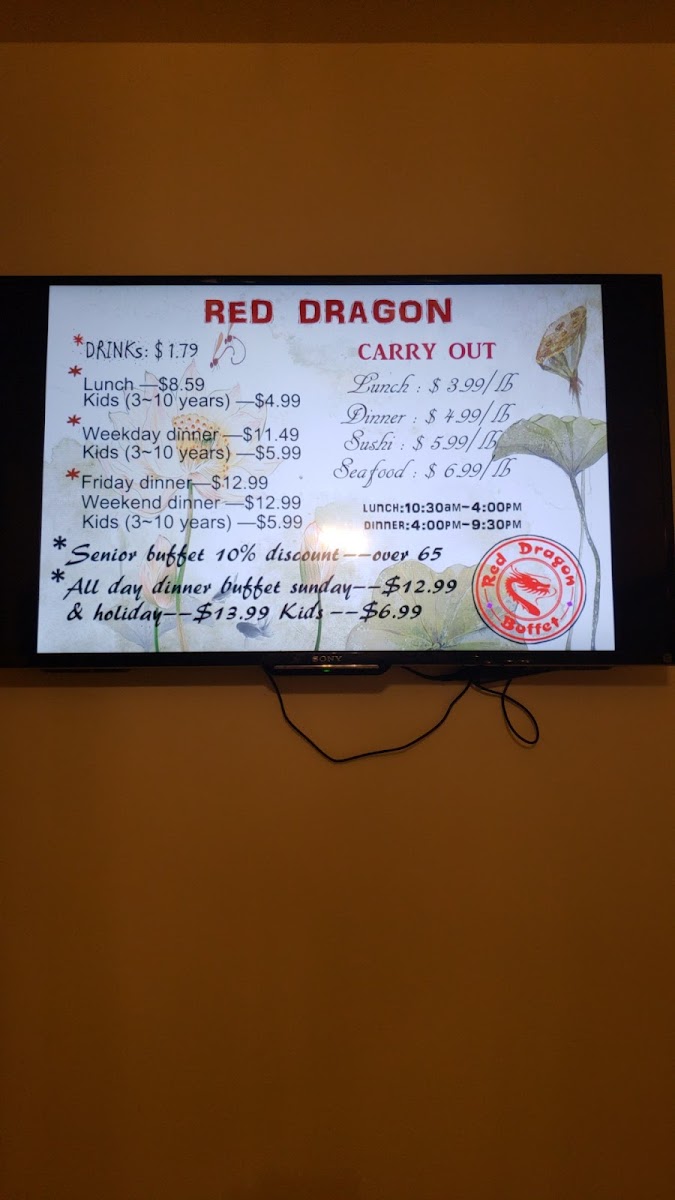 RED DRAGON
*DRINKs: $1.79
*Lunch —$8.59
Kids (3~10 years) —$4.99
*Weekday dinner —$11.49
Kids (3~10 years) —$5.99
*Friday dinner—$12.99
Weekend dinner —$12.99
Kids (3~10 years) —$5.99
CARRY OUT
Lunch : $ 3.99/lb
Dinner : $ 4.99/lb
Sushi : $ 5.99/lb
Seafood : $ 6.99/lb
LUNCH:10:30AM-4:00PM
DINNER:4:00PM-9:30PM
*Senior buffet 10% discount--over 65
*All day dinner buffet sunday--$12.99
& holiday--$13.99 Kids--$6.99
Red Dragon
Buffet
SONY